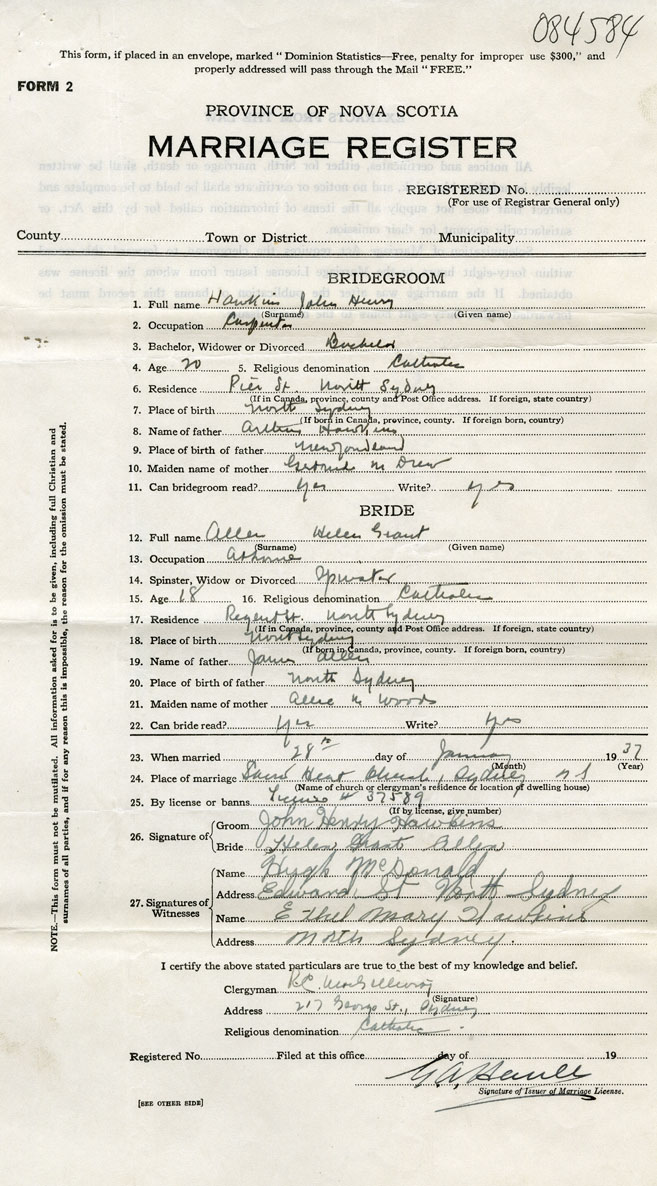 084584
This form, if placed in an envelope, marked "Dominion Statistics—Free, penalty for improper use $300," and
properly addressed will pass through the Mail "FREE."
FORM 2
PROVINCE OF NOVA SCOTIA
MARRIAGE REGISTER
REGISTERED No.
(For use of Registrar General only)
County Town or District Municipality
BRIDEGROOM
1. Full name Hawkins John Henry
(Surname) (Given name)
2. Occupation Carpenter
3. Bachelor, Widower or Divorced Bachelor
4. Age 20 5. Religious denomination Catholic
6. Residence Pier St. North Sydney
(If in Canada, province, county and Post Office address. If foreign, state country)
7. Place of birth North Sydney
(If born in Canada, province, county. If foreign born, country)
8. Name of father Arthur Hawkins
9. Place of birth of father Newfoundland
10. Maiden name of mother Gertrude M Drew
11. Can bridegroom read? Yes Write? yes
BRIDE
12. Full name Allen Helen Grant
(Surname) (Given name)
13. Occupation At home
14. Spinster, Widow or Divorced Spinster
15. Age 18 16. Religious denomination Catholic
17. Residence Regent St. North Sydney
(If in Canada, province, county and Post Office address. If foreign, state country)
18. Place of birth North Sydney
(If born in Canada, province, county. If foreign born, country)
19. Name of father James Allen
20. Place of birth of father North Sydney
21. Maiden name of mother Allie M Woods
22. Can bride read? Yes Write? Yes
23. When married 28th day of January 1937
(Month) (Year)
24. Place of marriage Heart Church, Sydney N S
(Name of church or clergyman's residence or location of dwelling house)
25. By license or banns License # 37589
(If by license, give number)
26. Signature of Groom John Henry Hawkins
Bride Helen Grant Allen
27. Signatures of Witnesses Name Hugh McDonald
Address Edward St North Sydney
Name Ethel Mary Hawkins
Address North Sydney.
I certify the above stated particulars are true to the best of my knowledge and belief.
Clergyman
(Signature)
Address 217 George St., Sydney
Religious denomination Catholic
Registered No. Filed at this office day of 19
Signature of Issuer of Marriage License.
[SEE OTHER SIDE]
NOTE.—This form must not be mutilated. All information asked for is to be given, including full Christian and
surnames of all parties, and if for any reason this is impossible, the reason for the omission must be stated.